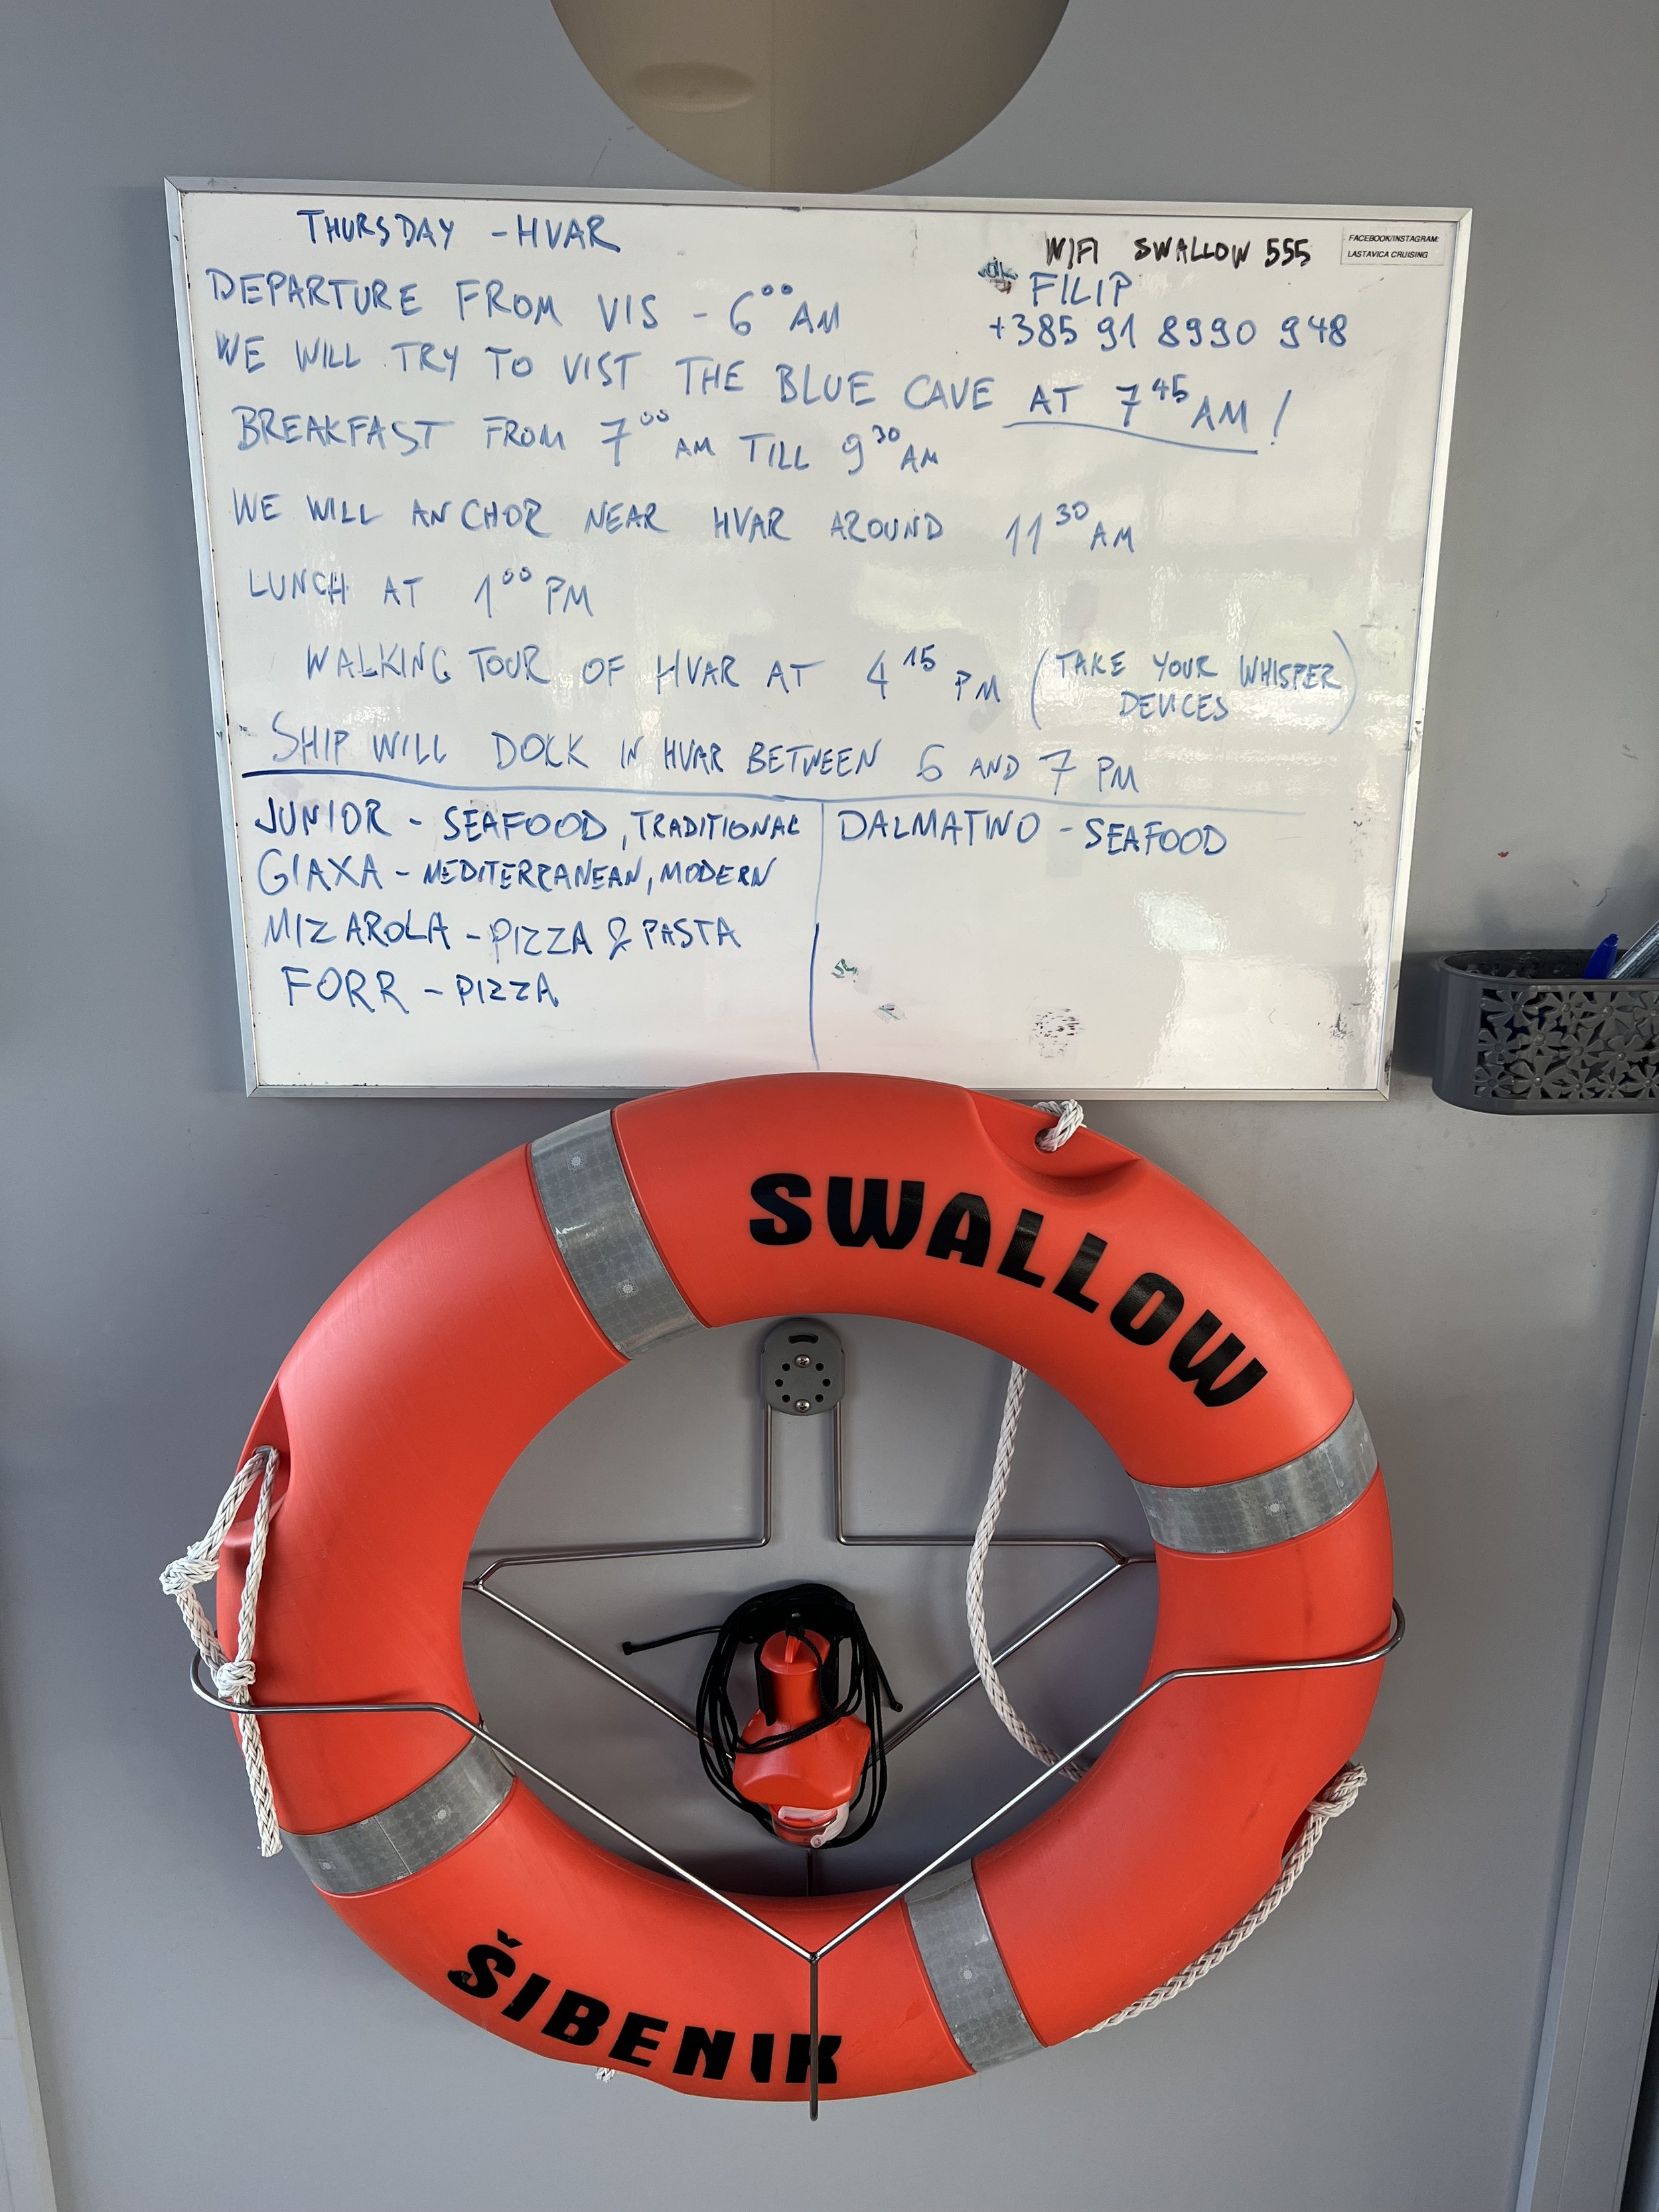 THURSDAY - HVAR
WIFI SWALLOW 555
FACEBOOK/INSTAGRAM:
LASTAVICA CRUISING
DEPARTURE FROM VIS - 6⁰⁰ AM
FILIP
+385 91 8990 948
WE WILL TRY TO VIST THE BLUE CAVE AT 7⁴⁵ AM!
BREAKFAST FROM 7⁰⁰ AM TILL 9³⁰ AM
WE WILL ANCHOR NEAR HVAR AROUND 11³⁰ AM
LUNCH AT 1⁰⁰ PM
WALKING TOUR OF HVAR AT 4¹⁵ PM (TAKE YOUR WHISPER
DEVICES)
SHIP WILL DOCK IN HVAR BETWEEN 6 AND 7 PM
JUNIOR - SEAFOOD, TRADITIONAL
GIAXA - MEDITERRANEAN, MODERN
MIZAROLA - PIZZA & PASTA
FORR - PIZZA
DALMATINO - SEAFOOD
SWALLOW
ŠIBENIK